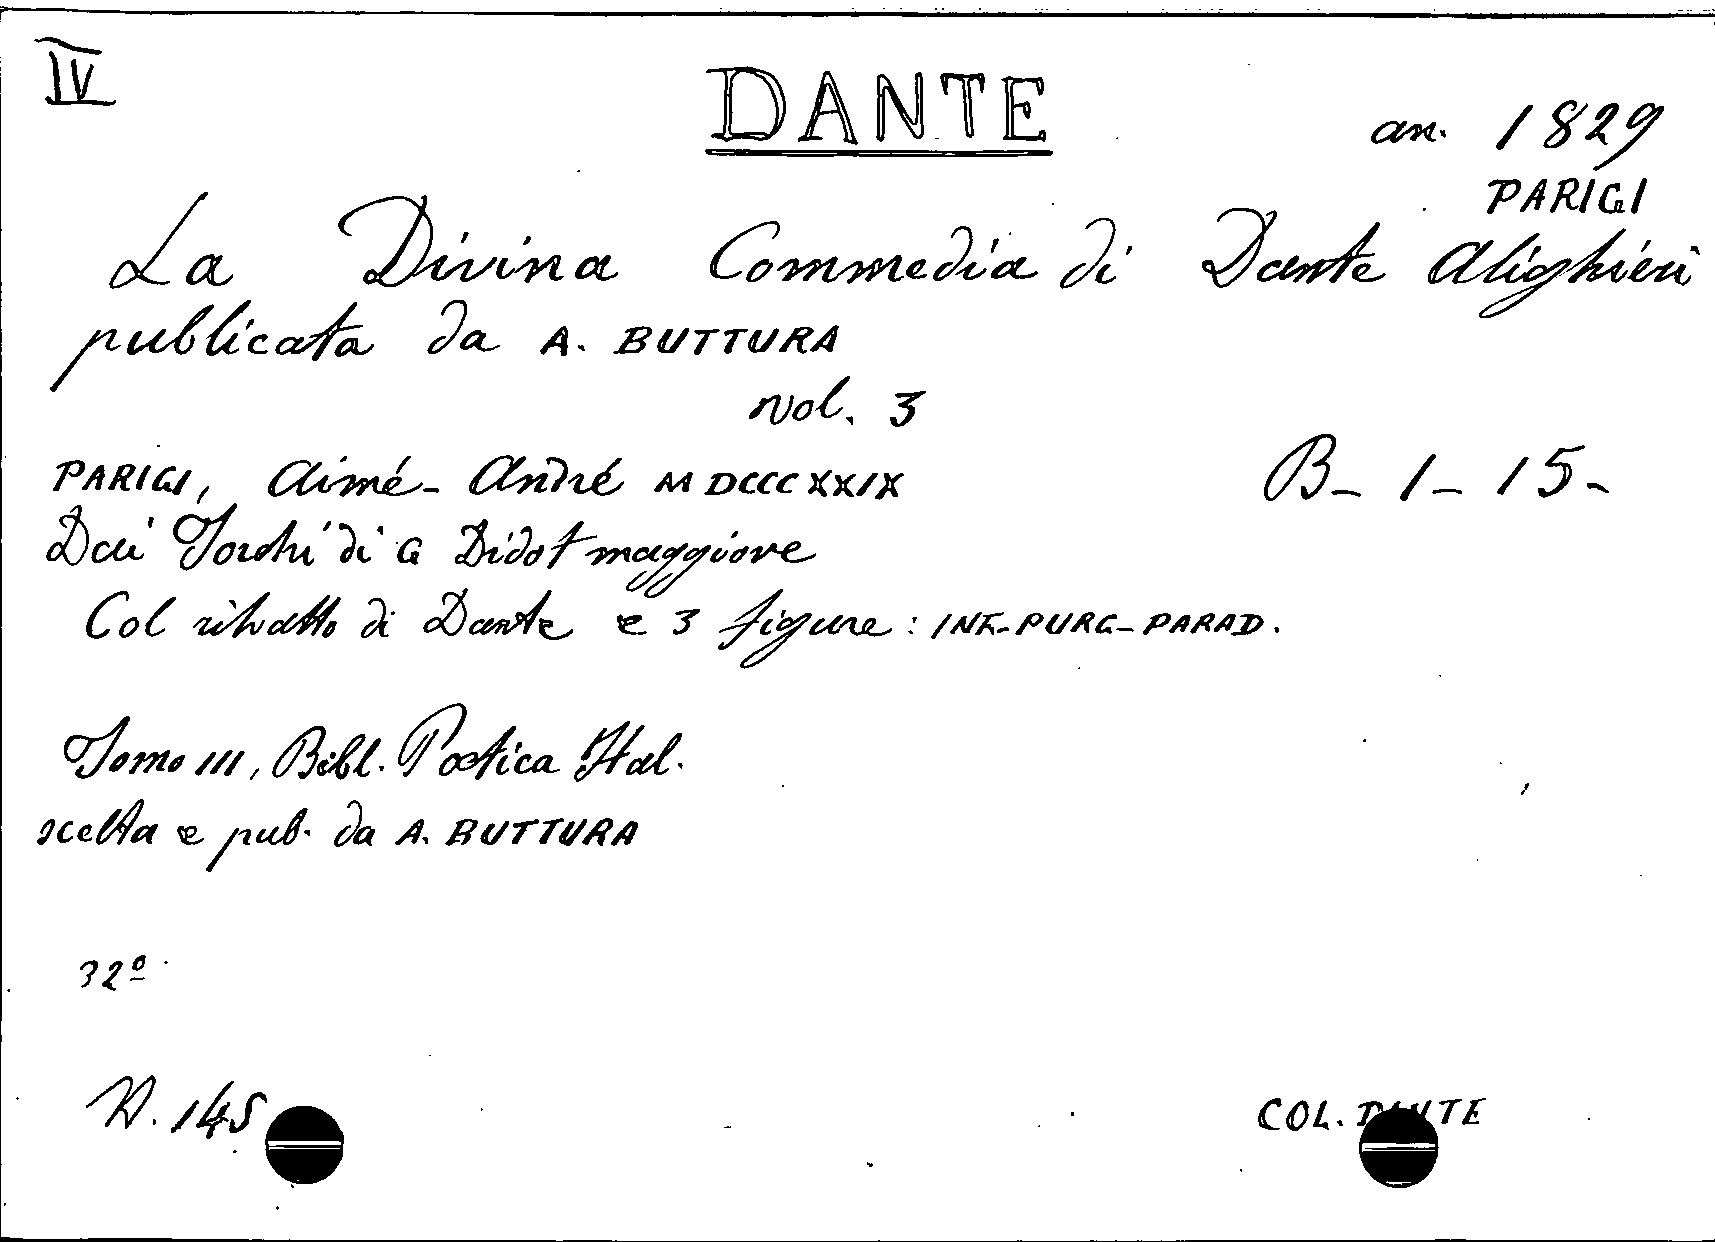 IV
DANTE
an. 1829
PARIGI
La Divina Commedia di Dante Alighieri
publicata da A. BUTTURA
vol. 3
PARIGI, Aimé-André MDCCCXXIX
B-1-15-
Dai Torchi di G Didot maggiore
Col ritratto di Dante e 3 figure: INF.-PURG-PARAD.
Tomo III, Bibl. Poetica Ital.
scelta e pub. da A. BUTTURA
32º
N. 145
COL. DANTE